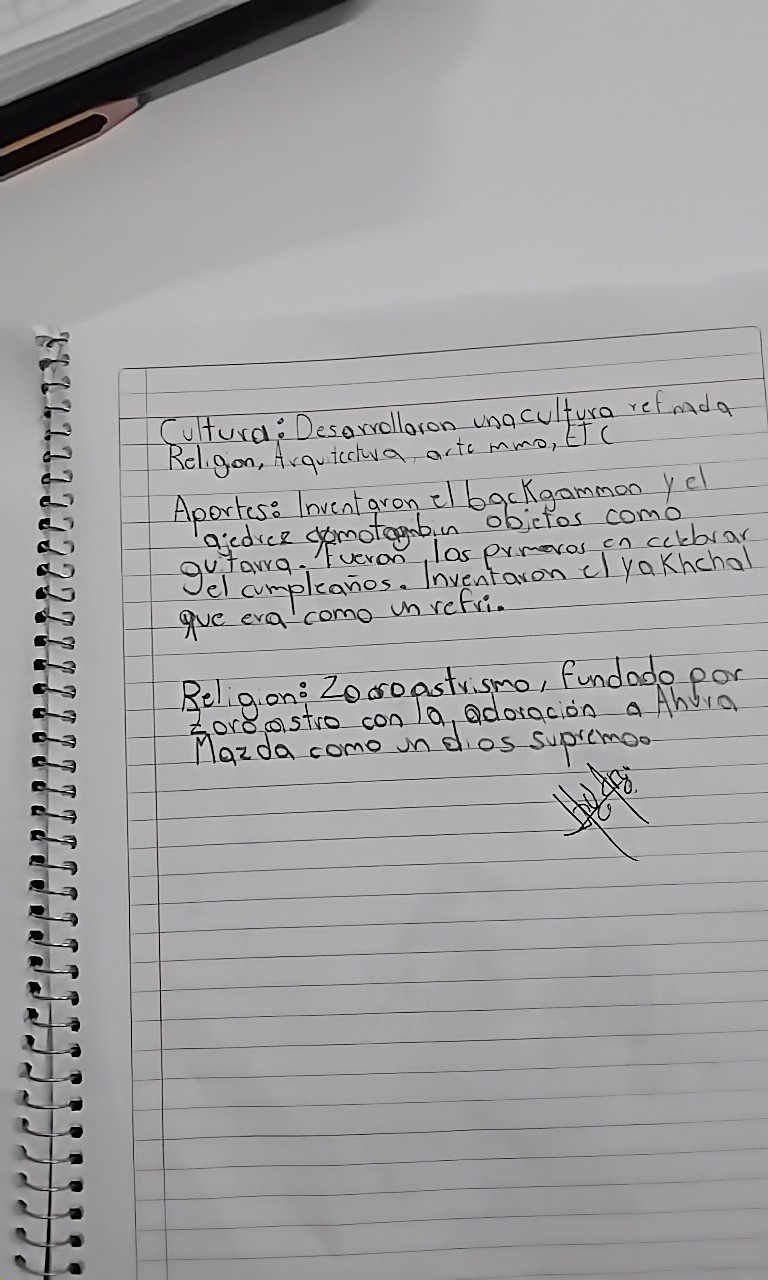 Cultura: Desarrollaron una cultura refinada
Religion, Arquitectura, arte mmo, ETC
Aportes: Inventaron el backgammon y el
ajedrez como tambin objetos como
guitarra. Fueron los primeros en celebrar
el cumpleaños. Inventaron el yakhchal
que era como un refri.
Religion: Zoroastrismo, fundado por
Zoroastro con la adoración a Ahura
Mazda como un dios supremo.